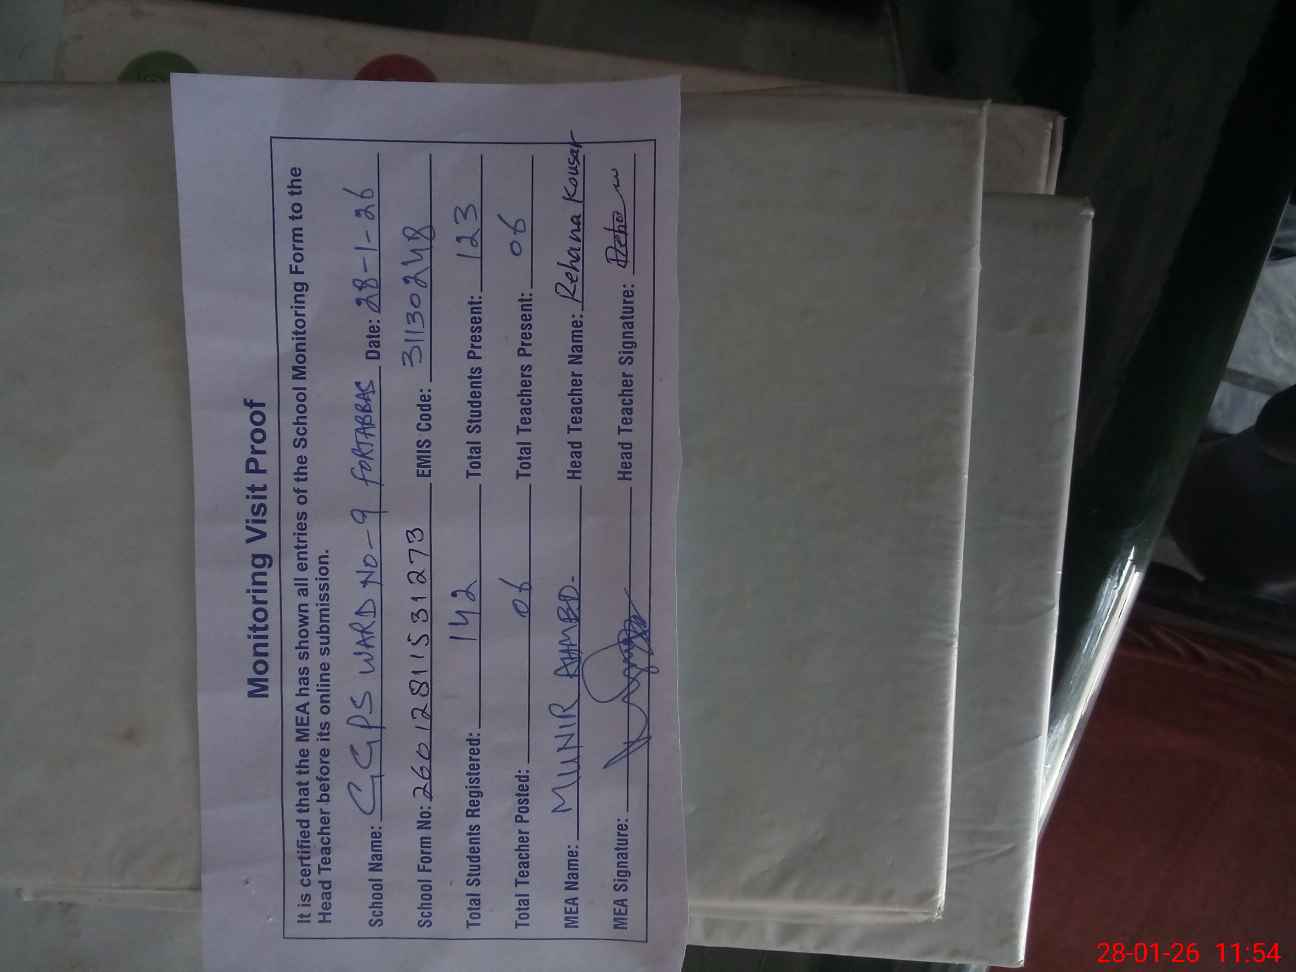 Monitoring Visit Proof
It is certified that the MEA has shown all entries of the School Monitoring Form to the
Head Teacher before its online submission.
School Name: GGPS WARD NO-9 FORTABBAS Date: 28-1-26
School Form No: 260128115 31273 EMIS Code: 31130248
Total Students Registered: 142 Total Students Present: 123
Total Teacher Posted: 06 Total Teachers Present: 06
MEA Name: MUNIR AHMED- Head Teacher Name: Rehana Kousar
MEA Signature: Head Teacher Signature:
28-01-26 11:54